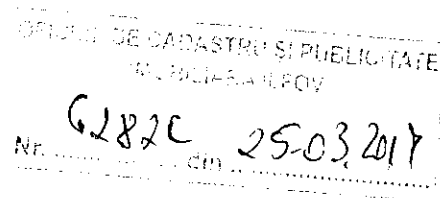 OFICIUL DE CADASTRU SI PUBLICITATE
IMOBILIARA ILFOV
Nr. din 25.03.2017